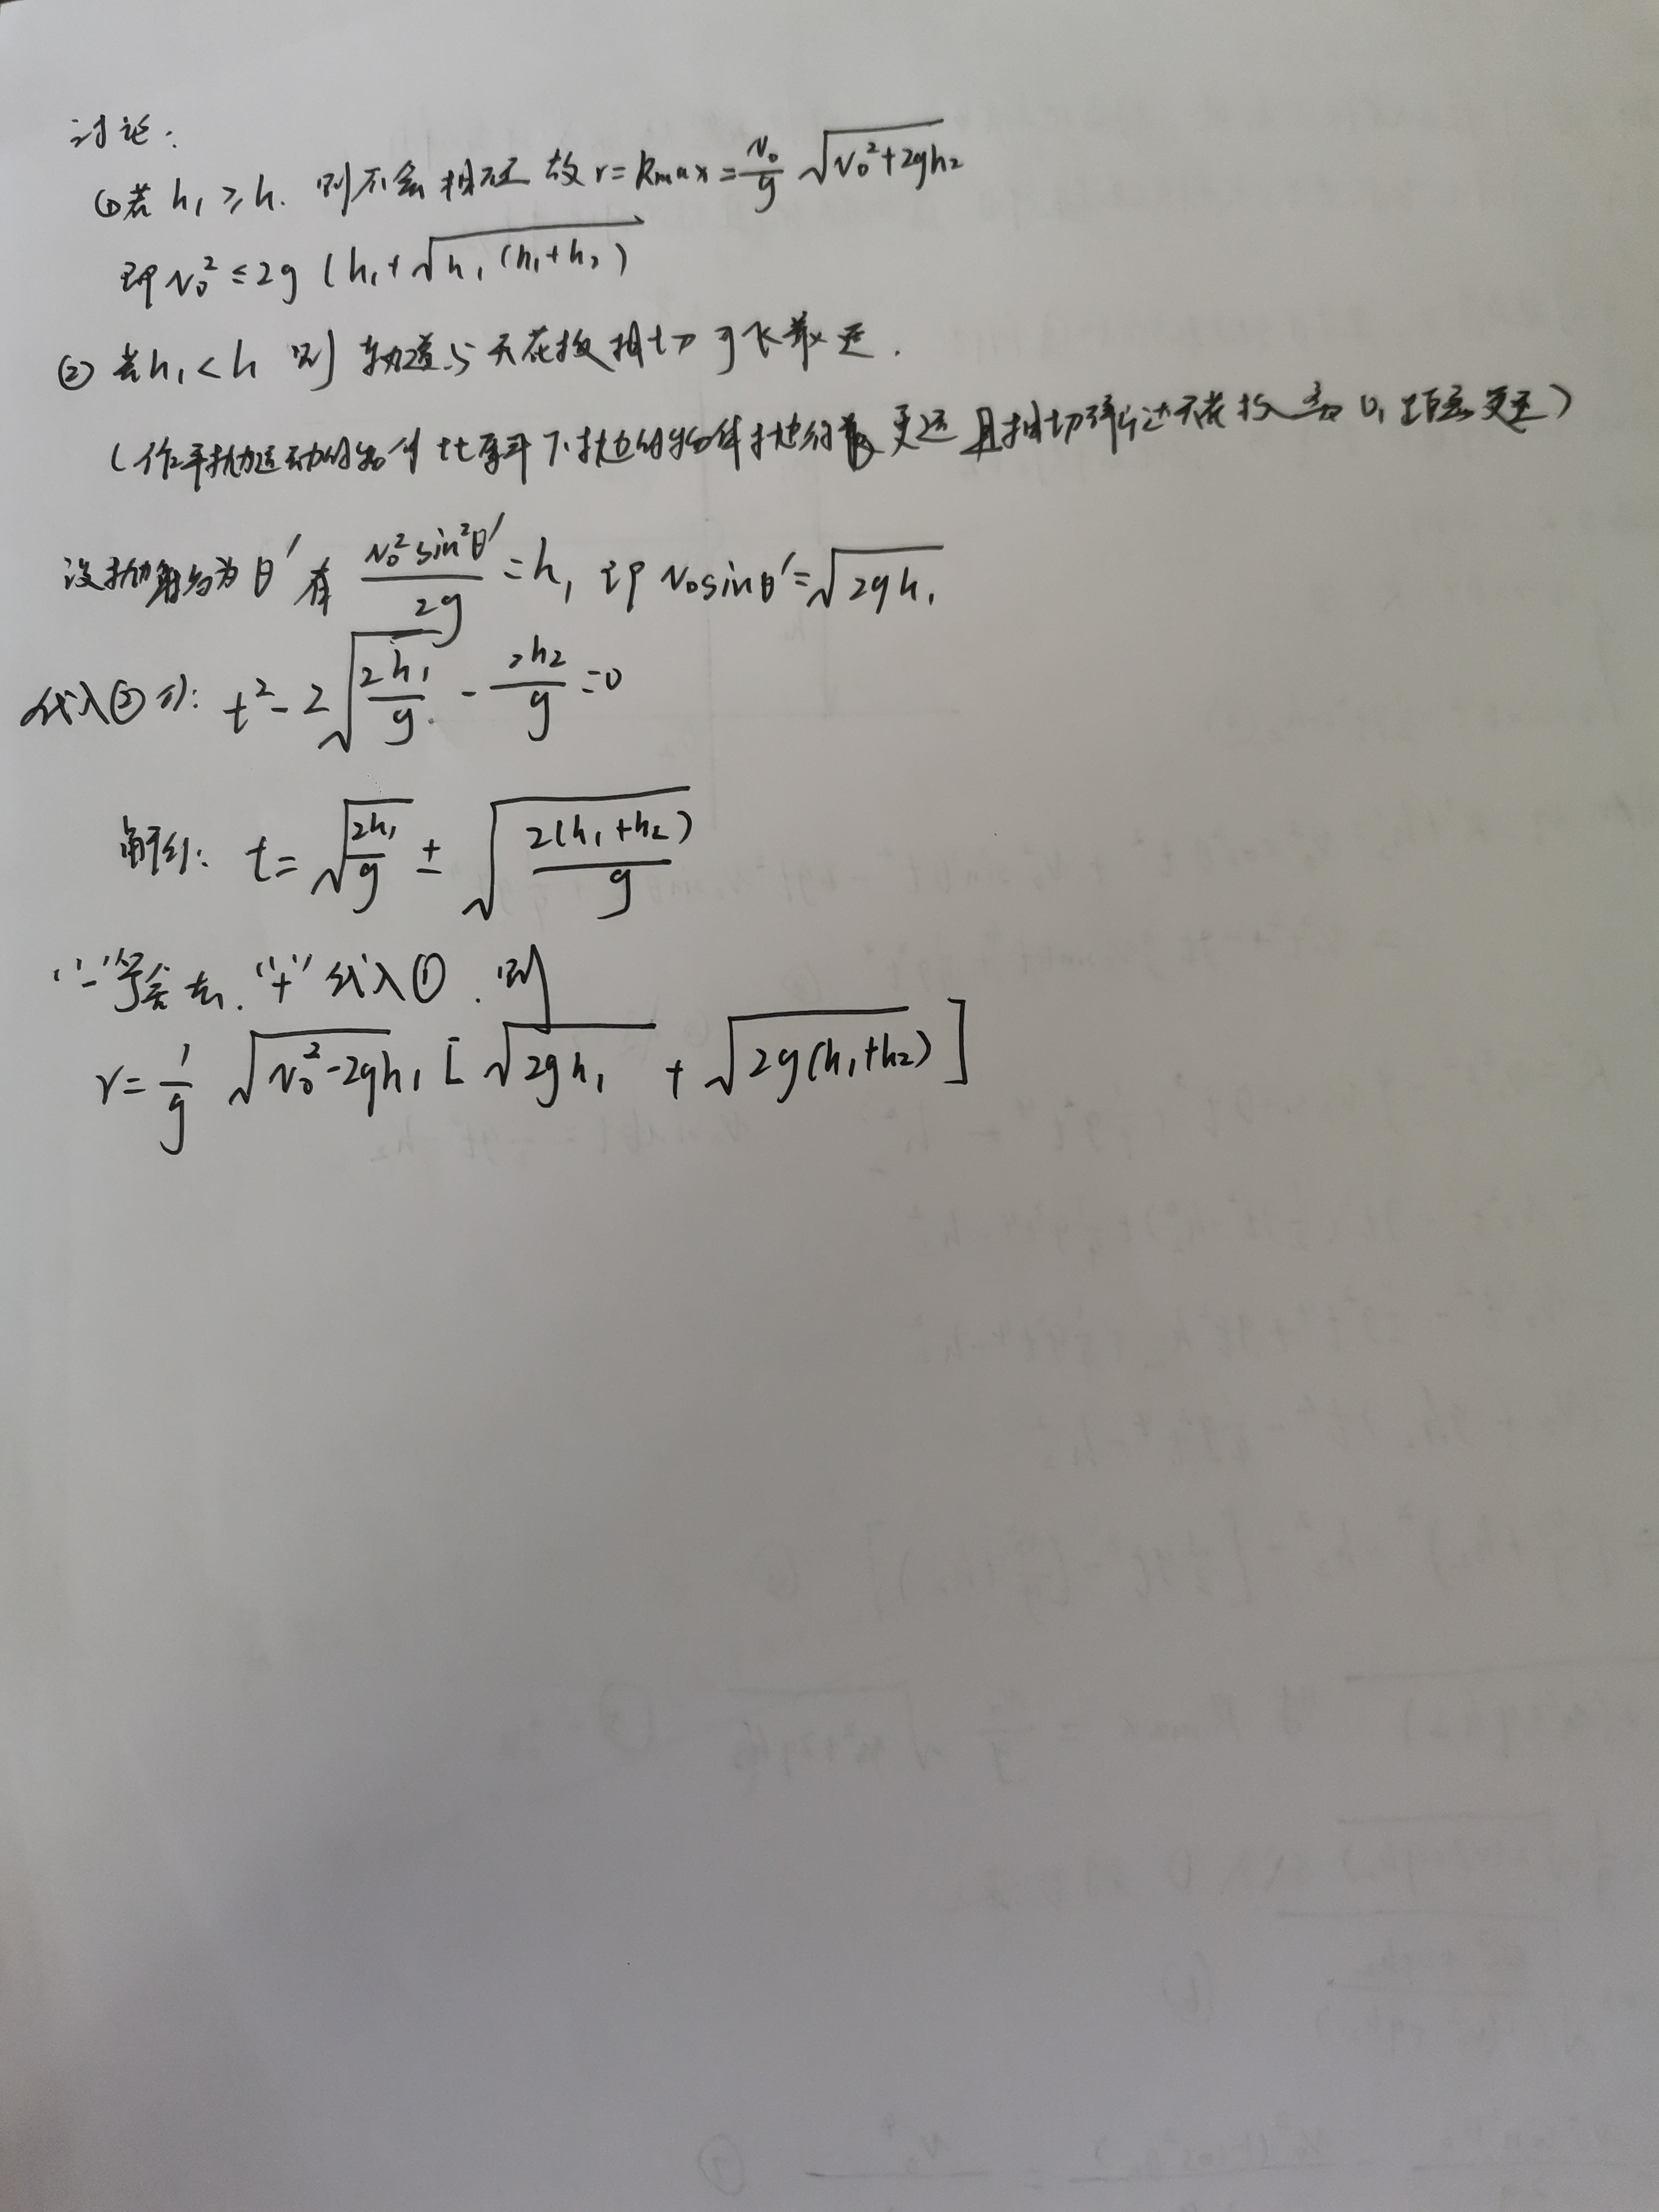 讨论:
①若 h₁≥h. 则不会相碰 故 r=Rmax=\frac{v₀}{g}\sqrt{v₀²+2gh₂}
即 v₀²≤2g(h₁+\sqrt{h₁(h₁+h₂)}
② 若h₁<h 则 轨道与天花板相切时长最远.
(作平抛运动的物体比平下抛的物体抛的更远 且相切 天花板 更远)
设抛射角为θ′ 有 \frac{v₀²sin²θ′}{2g}=h₁ 即 v₀sinθ′=\sqrt{2gh₁}
代入②式: t²-2\sqrt{\frac{2h₁}{g}}-\frac{2h₂}{g}=0
解得: t=\sqrt{\frac{2h₁}{g}}±\sqrt{\frac{2(h₁+h₂)}{g}}
"-"号舍去. "+"代入①. 则
r=\frac{1}{g}\sqrt{v₀²-2gh₁}[\sqrt{2gh₁}+\sqrt{2g(h₁+h₂)}]